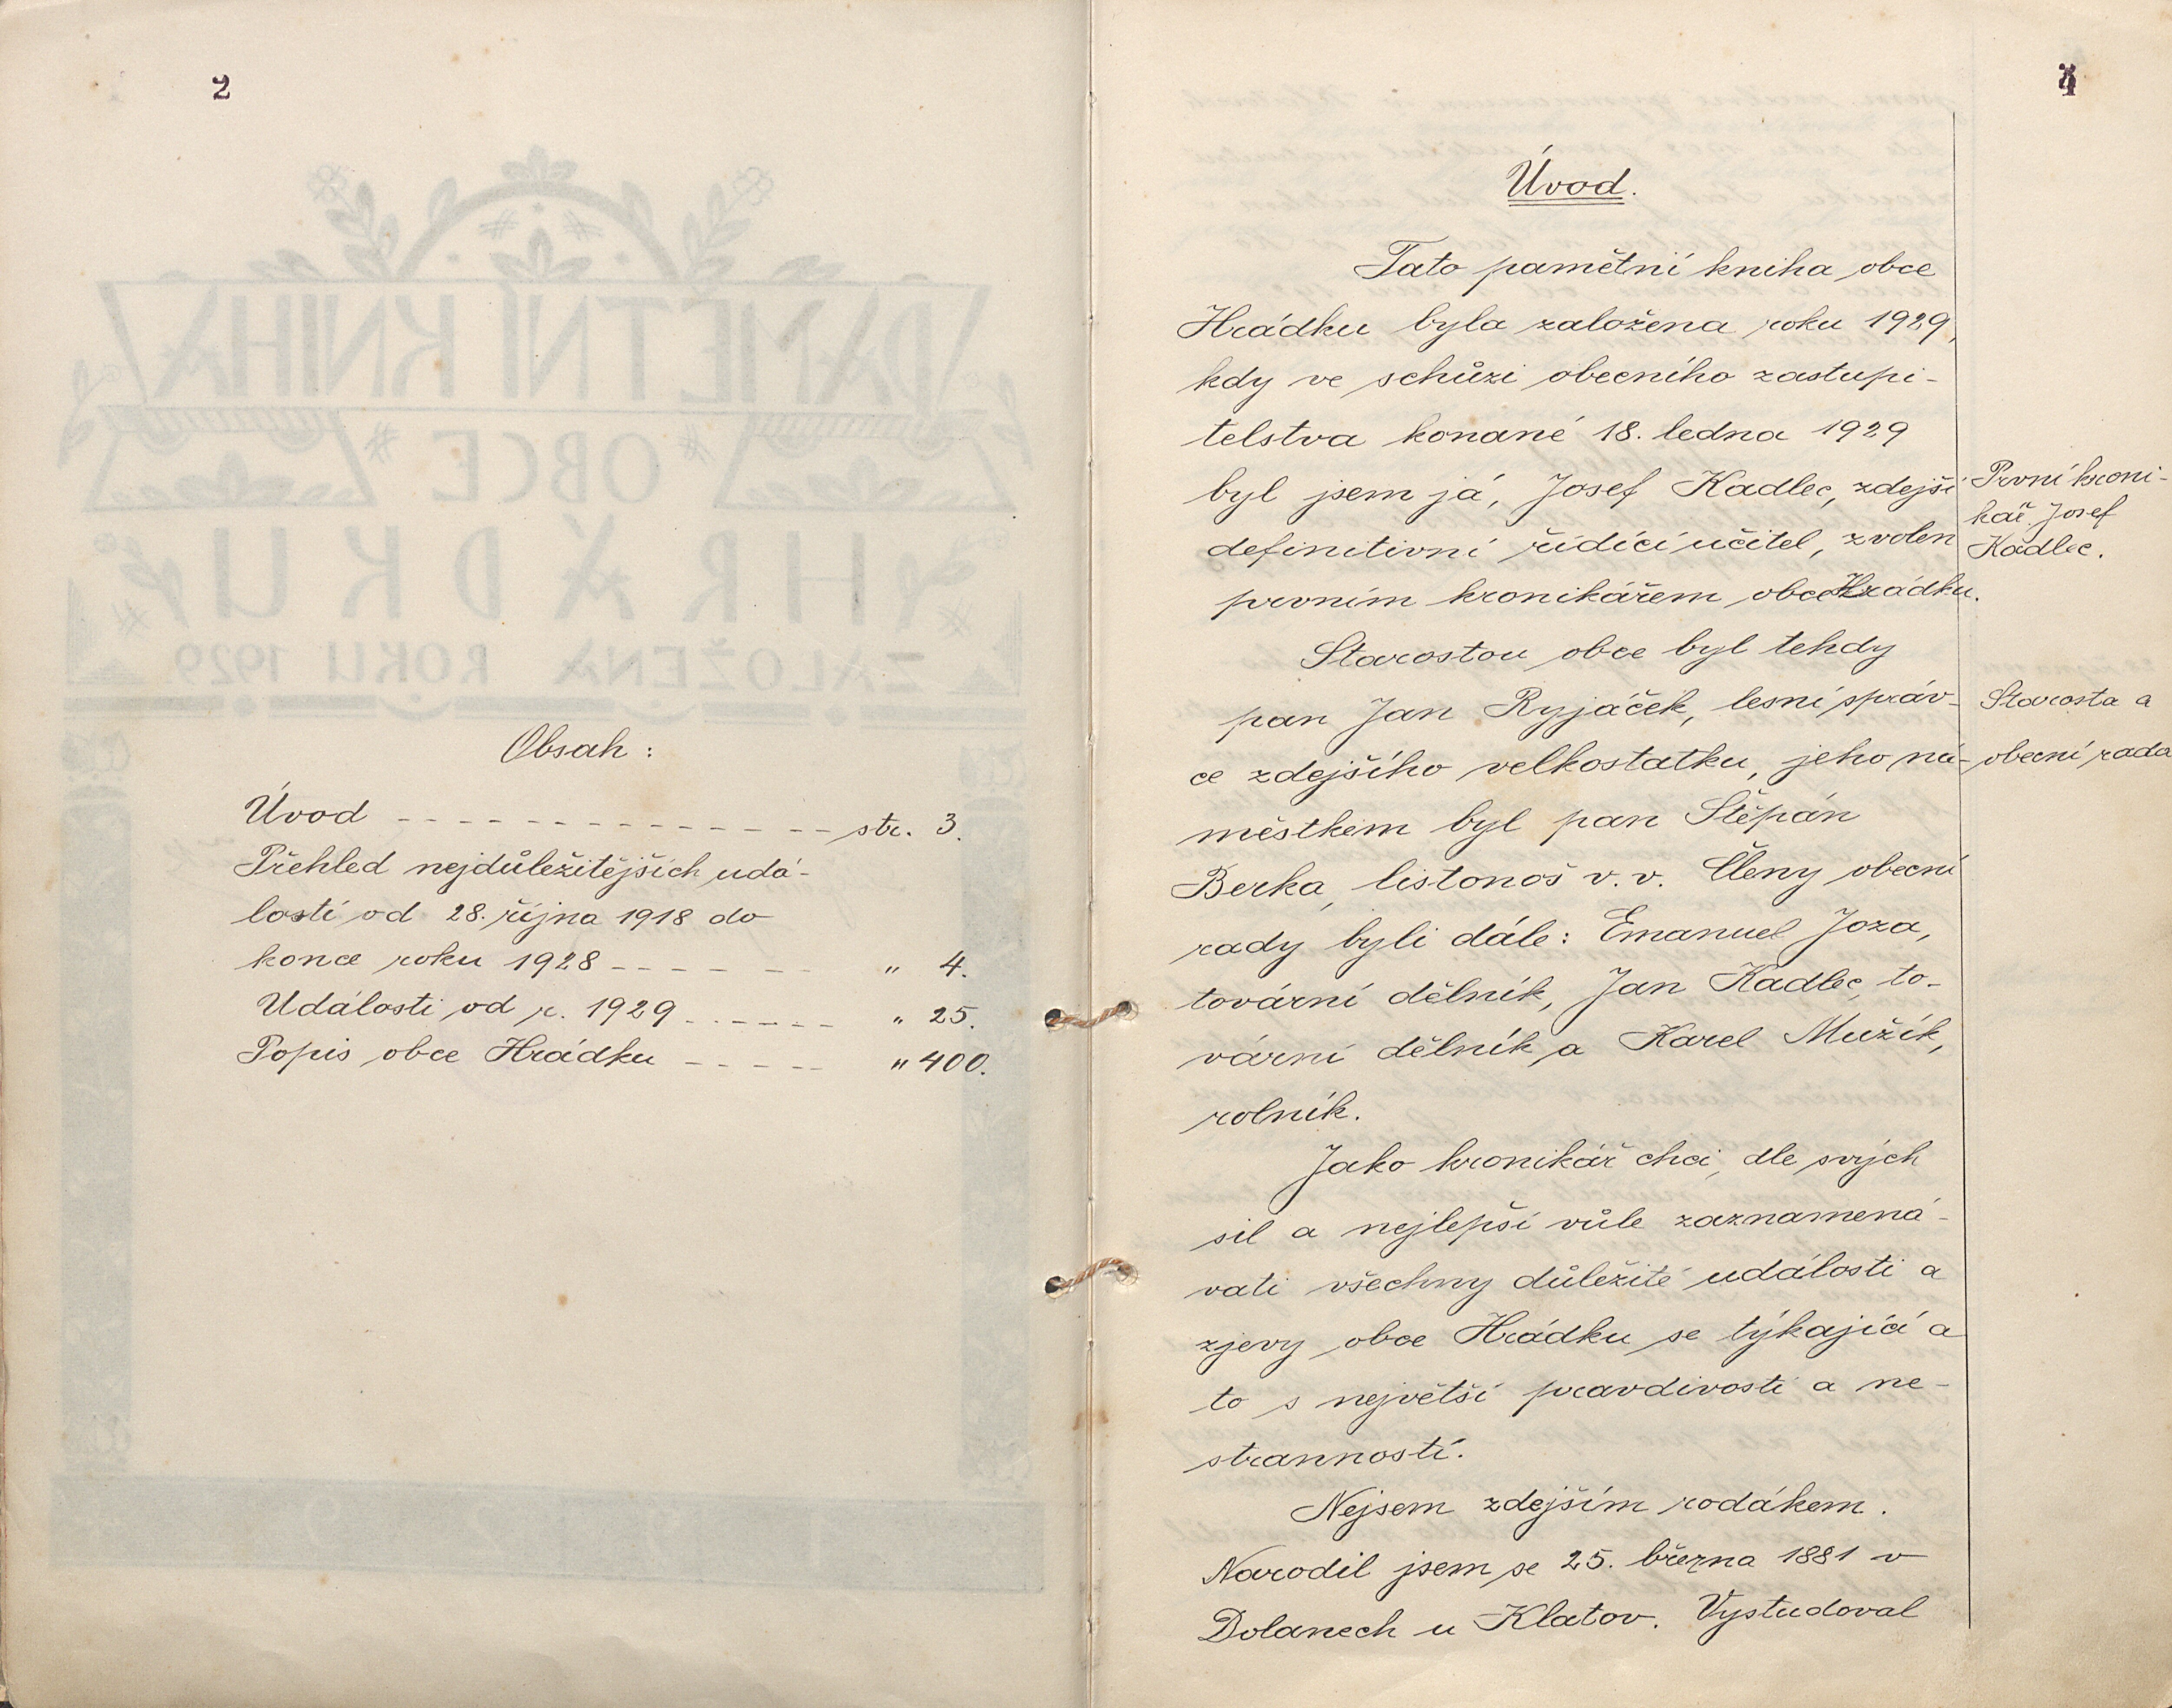 2
Obsah:
Úvod - - - - - - - - - - - - - - - str. 3.
Přehled nejdůležitějších udá-
lostí od 28. října 1918 do
konce roku 1928 - - - - - - " 4.
Události od r. 1929 - - - - - - " 25.
Popis obce Hrádku - - - - - " 400.
Úvod.
Tato pamětní kniha obce
Hrádku byla založena roku 1929,
kdy ve schůzi obecního zastupi-
telstva konané 18. ledna 1929
byl jsem já, Josef Kadlec, zdejší
definitivní řídící učitel, zvolen
prvním kronikářem obce Hrádku.
První kroni-
kář Josef
Kadlec.
Starostou obce byl tehdy
pan Jan Ryjáček, lesní správ-
ce zdejšího velkostatku, jeho ná-
městkem byl pan Štěpán
Berka, listonoš v. v. Členy obecní
rady byli dále: Emanuel Joza,
tovární dělník, Jan Kadlec, to-
vární dělník a Karel Mužík,
rolník.
Starosta a
obecní rada
Jako kronikář chci, dle svých
sil a nejlepší vůle zaznamená-
vati všechny důležité události a
zjevy obce Hrádku se týkající a
to s největší pravdivostí a ne-
stranností.
Nejsem zdejším rodákem.
Narodil jsem se 25. března 1881 v
Dolanech u Klatov. Vystudoval